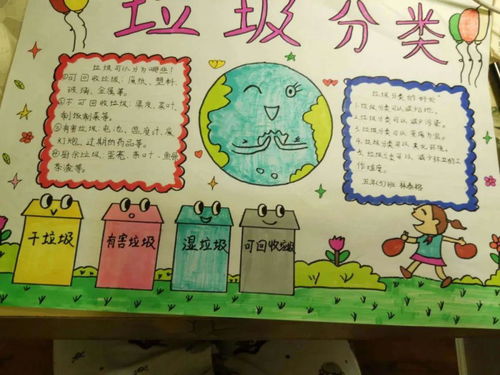 垃圾分类
垃圾可以分为哪些?
①可回收垃圾:废纸、塑料、
玻璃、金属等。
②不可回收垃圾:果皮、菜叶、
剩饭剩菜等。
③有害垃圾:电池、温度计、废
灯泡、过期的药品等。
④厨余垃圾:蛋壳、菜叶、鱼骨
等。
垃圾分类的好处
1.垃圾分类可以减少占地。
2.垃圾分类可以减少污染。
3.垃圾分类可以变废为宝。
4.垃圾分类可以美化环境。
5.垃圾分类可以减少环卫工人的工
作难度。
五年(5)班 林
干垃圾
有害垃圾
湿垃圾
可回收垃圾